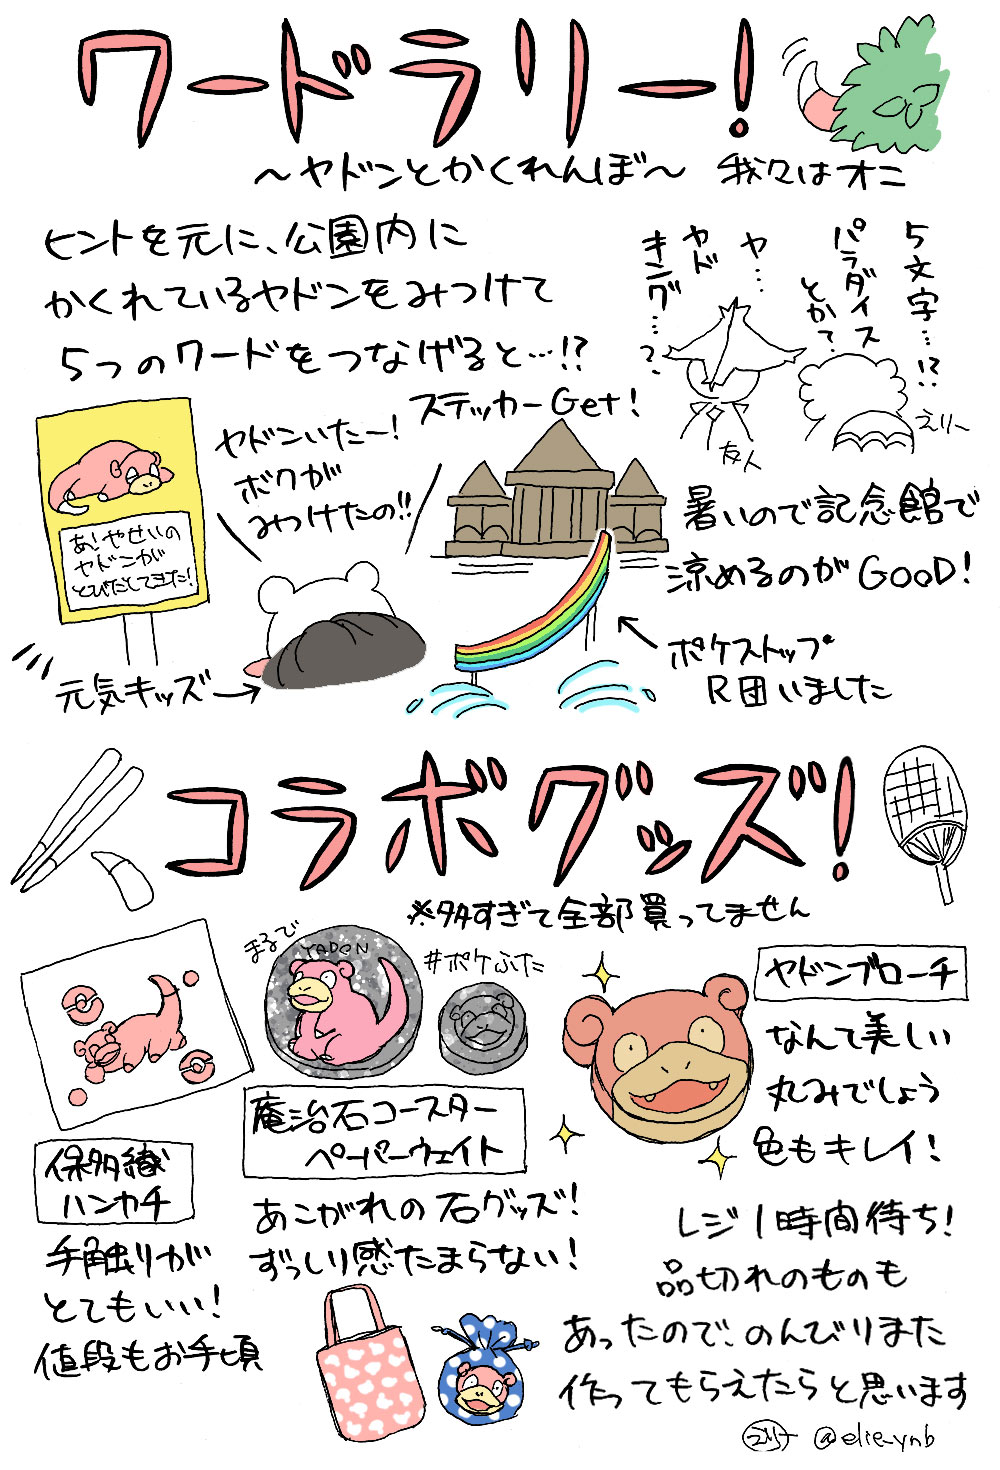 ワードラリー!
～ヤドンとかくれんぼ～ 我々はオニ
ヒントを元に、公園内に
かくれているヤドンをみつけて
5つのワードをつなげると…!?
ステッカーGet!
5文字…!?
パラダイス
とか?
ヤ…
ヤド
キング…?
友人
えりー
あ!やせいの
ヤドンが
とびだしてきた!
ヤドンいたー!
ボクが
みつけたの!!
元気キッズ→
暑いので記念館で
涼めるのがGOOD!
ポケストップ
R団いました
コラボグッズ!
※多すぎて全部買ってません
まるで
YADON
#ポケふた
保多織
ハンカチ
手触りが
とてもいい!
値段もお手頃
庵治石コースター
ペーパーウェイト
あこがれの石グッズ!
ずっしり感たまらない!
ヤドンブローチ
なんて美しい
丸みでしょう
色もキレイ!
レジ1時間待ち!
品切れのものも
あったので、のんびりまた
作ってもらえたらと思います
@elie_ynb